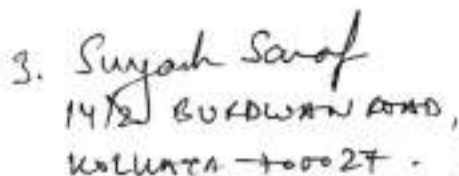 3. Suyash Saraf
14/2 BURDWAN ROAD,
KOLKATA - 700027.